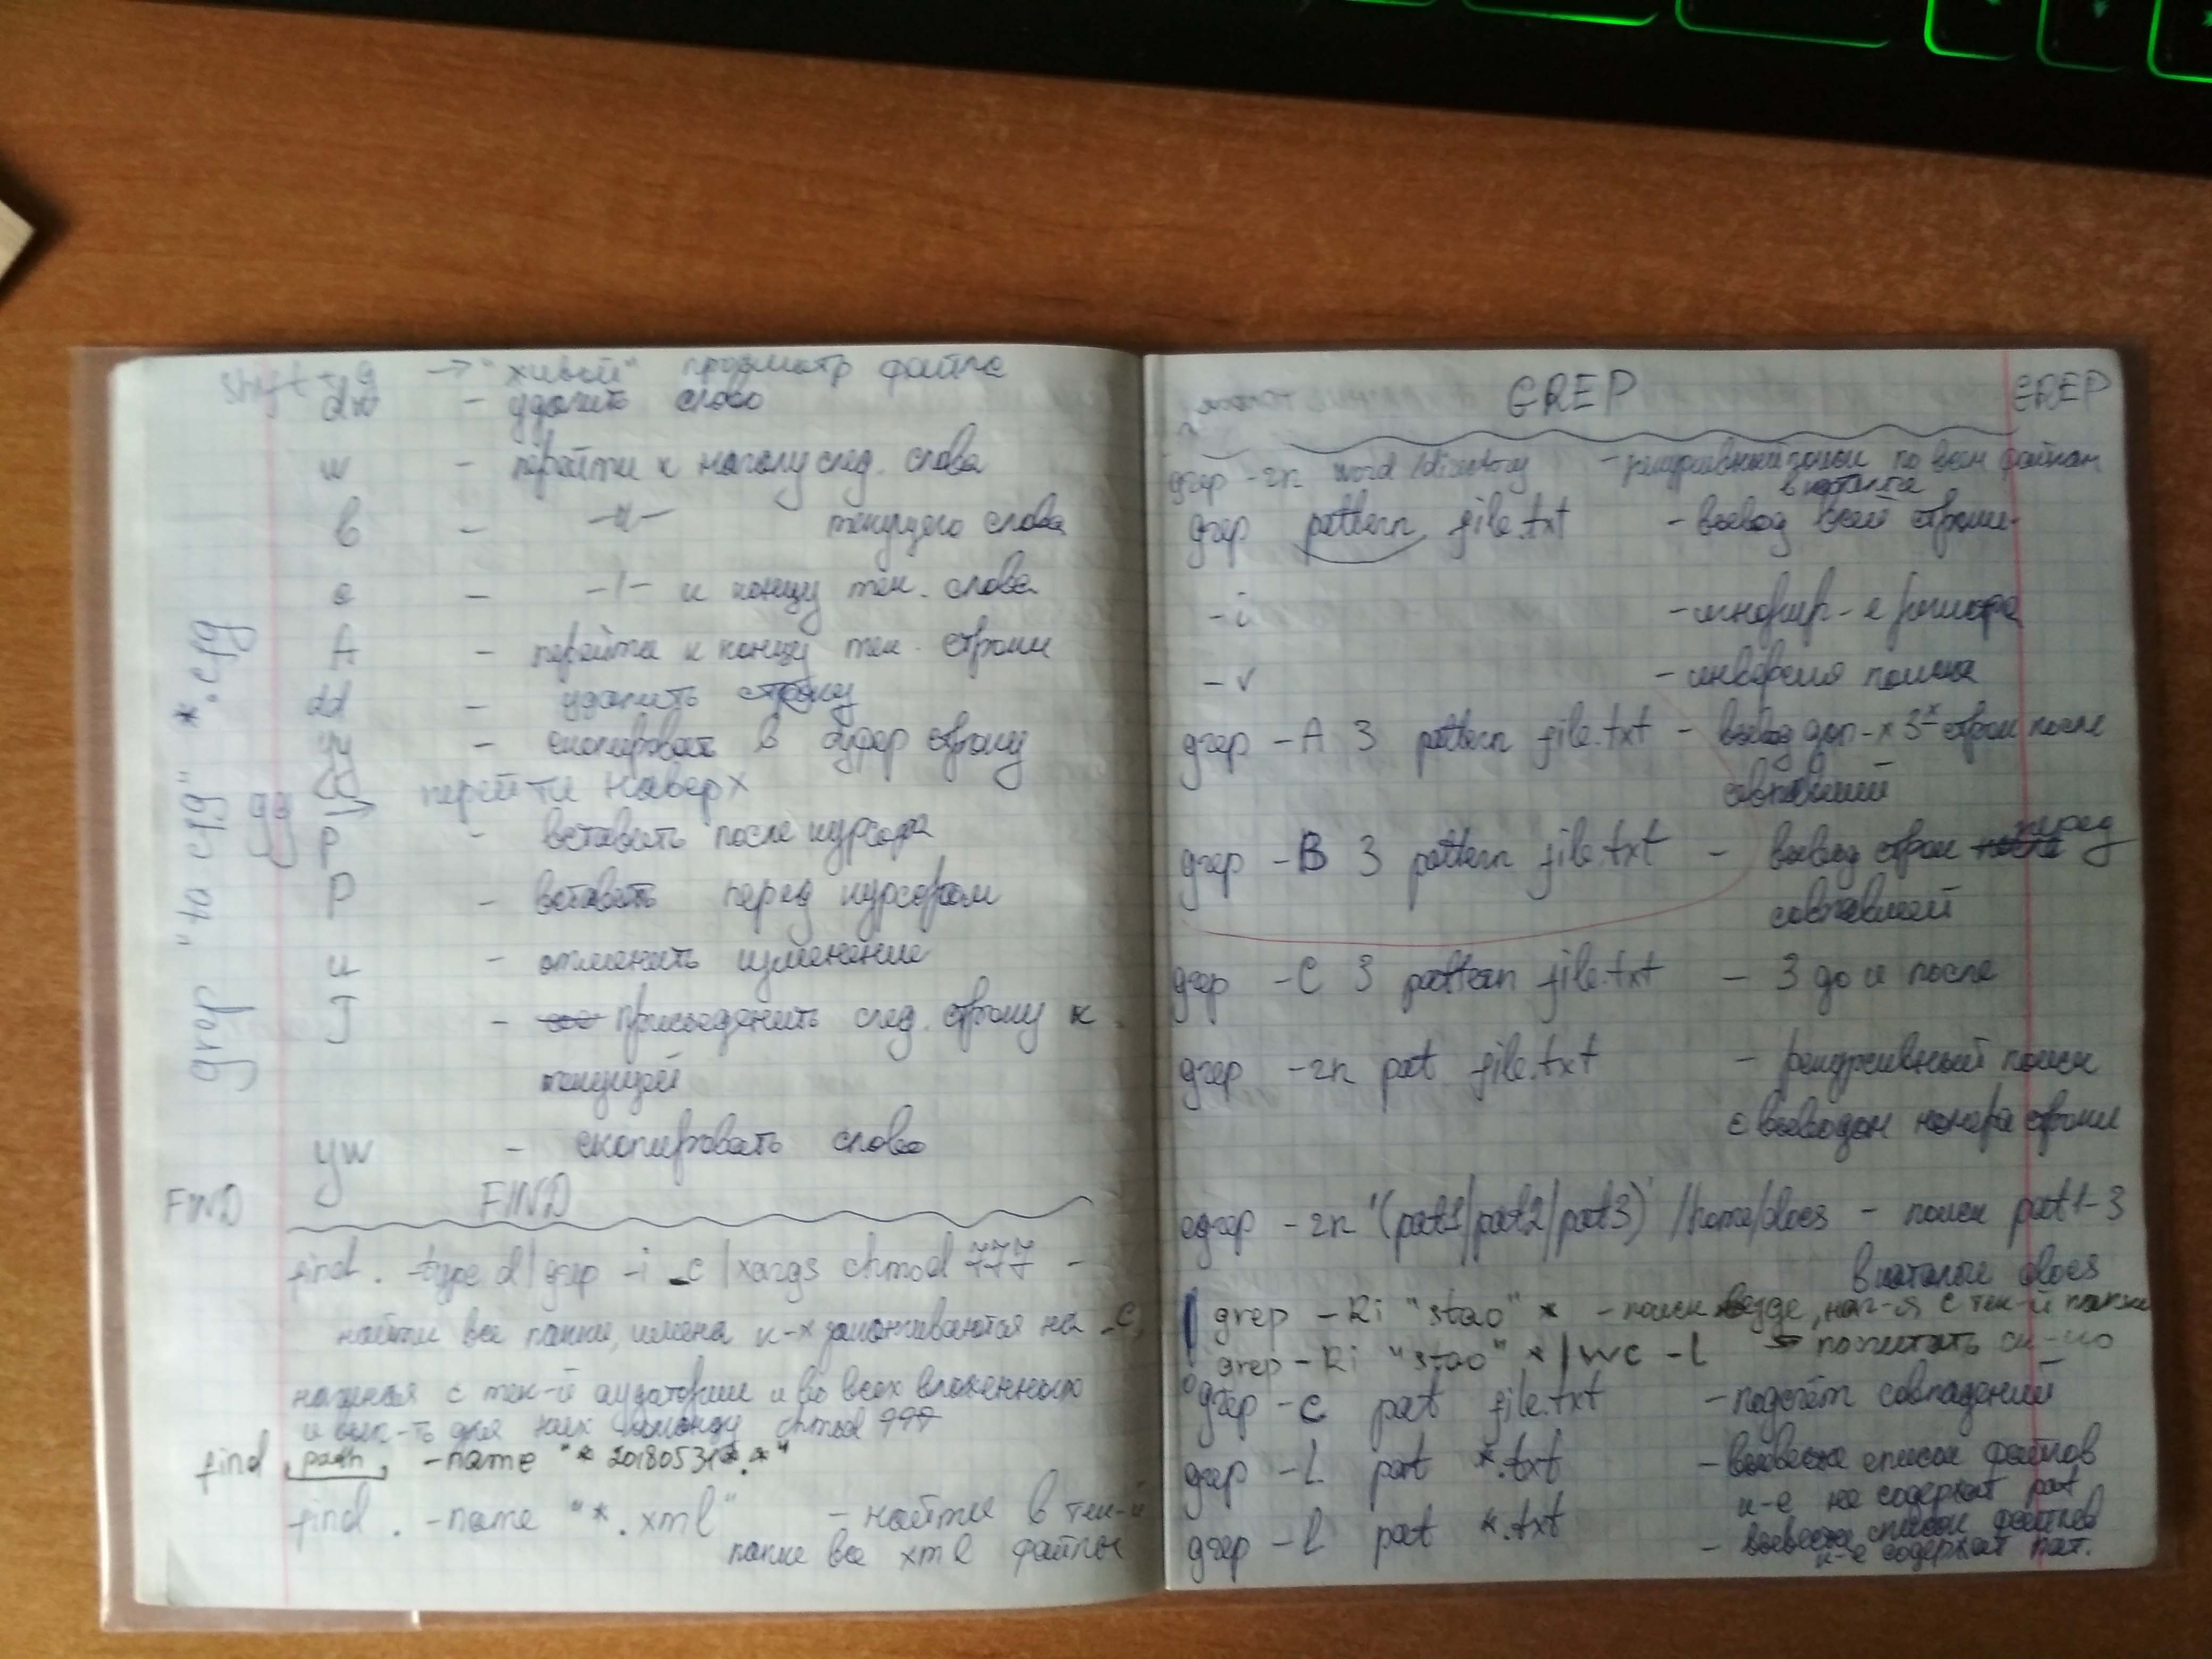 shift + g → "живой" просмотр файла
dw - удалить слово
w - перейти к началу след. слова
b - -//- текущего слова
e - -//- к концу тек. слова
A - перейти к концу тек. строки
dd - удалить строку
yy - скопировать в буфер строку
gg → перейти наверх
p - вставить после курсора
P - вставить перед курсором
u - отменить изменение
J - присоединить след. строку к
текущей
yw - скопировать слово
grep "to cfg" *.cfg
FIND FIND
find . -type d | grep -i _c | xargs chmod 777 -
найти все папки, имена к-х заканчиваются на _C,
начиная с тек-й и во всех вложенных
и вып-ть для них команду chmod 777
find path -name "*20180531*.*"
find . -name "*.xml" - найти в тек-й
папке все xml файлы
GREP GREP
grep -rn word /directory - рекурсивный поиск по всем файлам
в каталоге
grep pattern file.txt - вывод всей строки
-i - игнорир-е регистра
-v - инверсия поиска
grep -A 3 pattern file.txt - вывод доп-х 3х строк после
совпавшей
grep -B 3 pattern file.txt - вывод строк после перед
совпавшей
grep -C 3 pattern file.txt - 3 до и после
grep -rn pat file.txt - рекурсивный поиск
с выводом номера строки
egrep -rn '(pat1|pat2|pat3)' /home/docs - поиск pat1-3
в каталоге docs
grep -Ri "stao" * - поиск везде, нач-я с тек-й папки
grep -Ri "stao" * | wc -l посчитать
grep -c pat file.txt - подсчёт совпадений
grep -L pat *.txt - вывести список файлов
к-е не содержат pat
grep -l pat *.txt - вывести список файлов
к-е содержат пат.